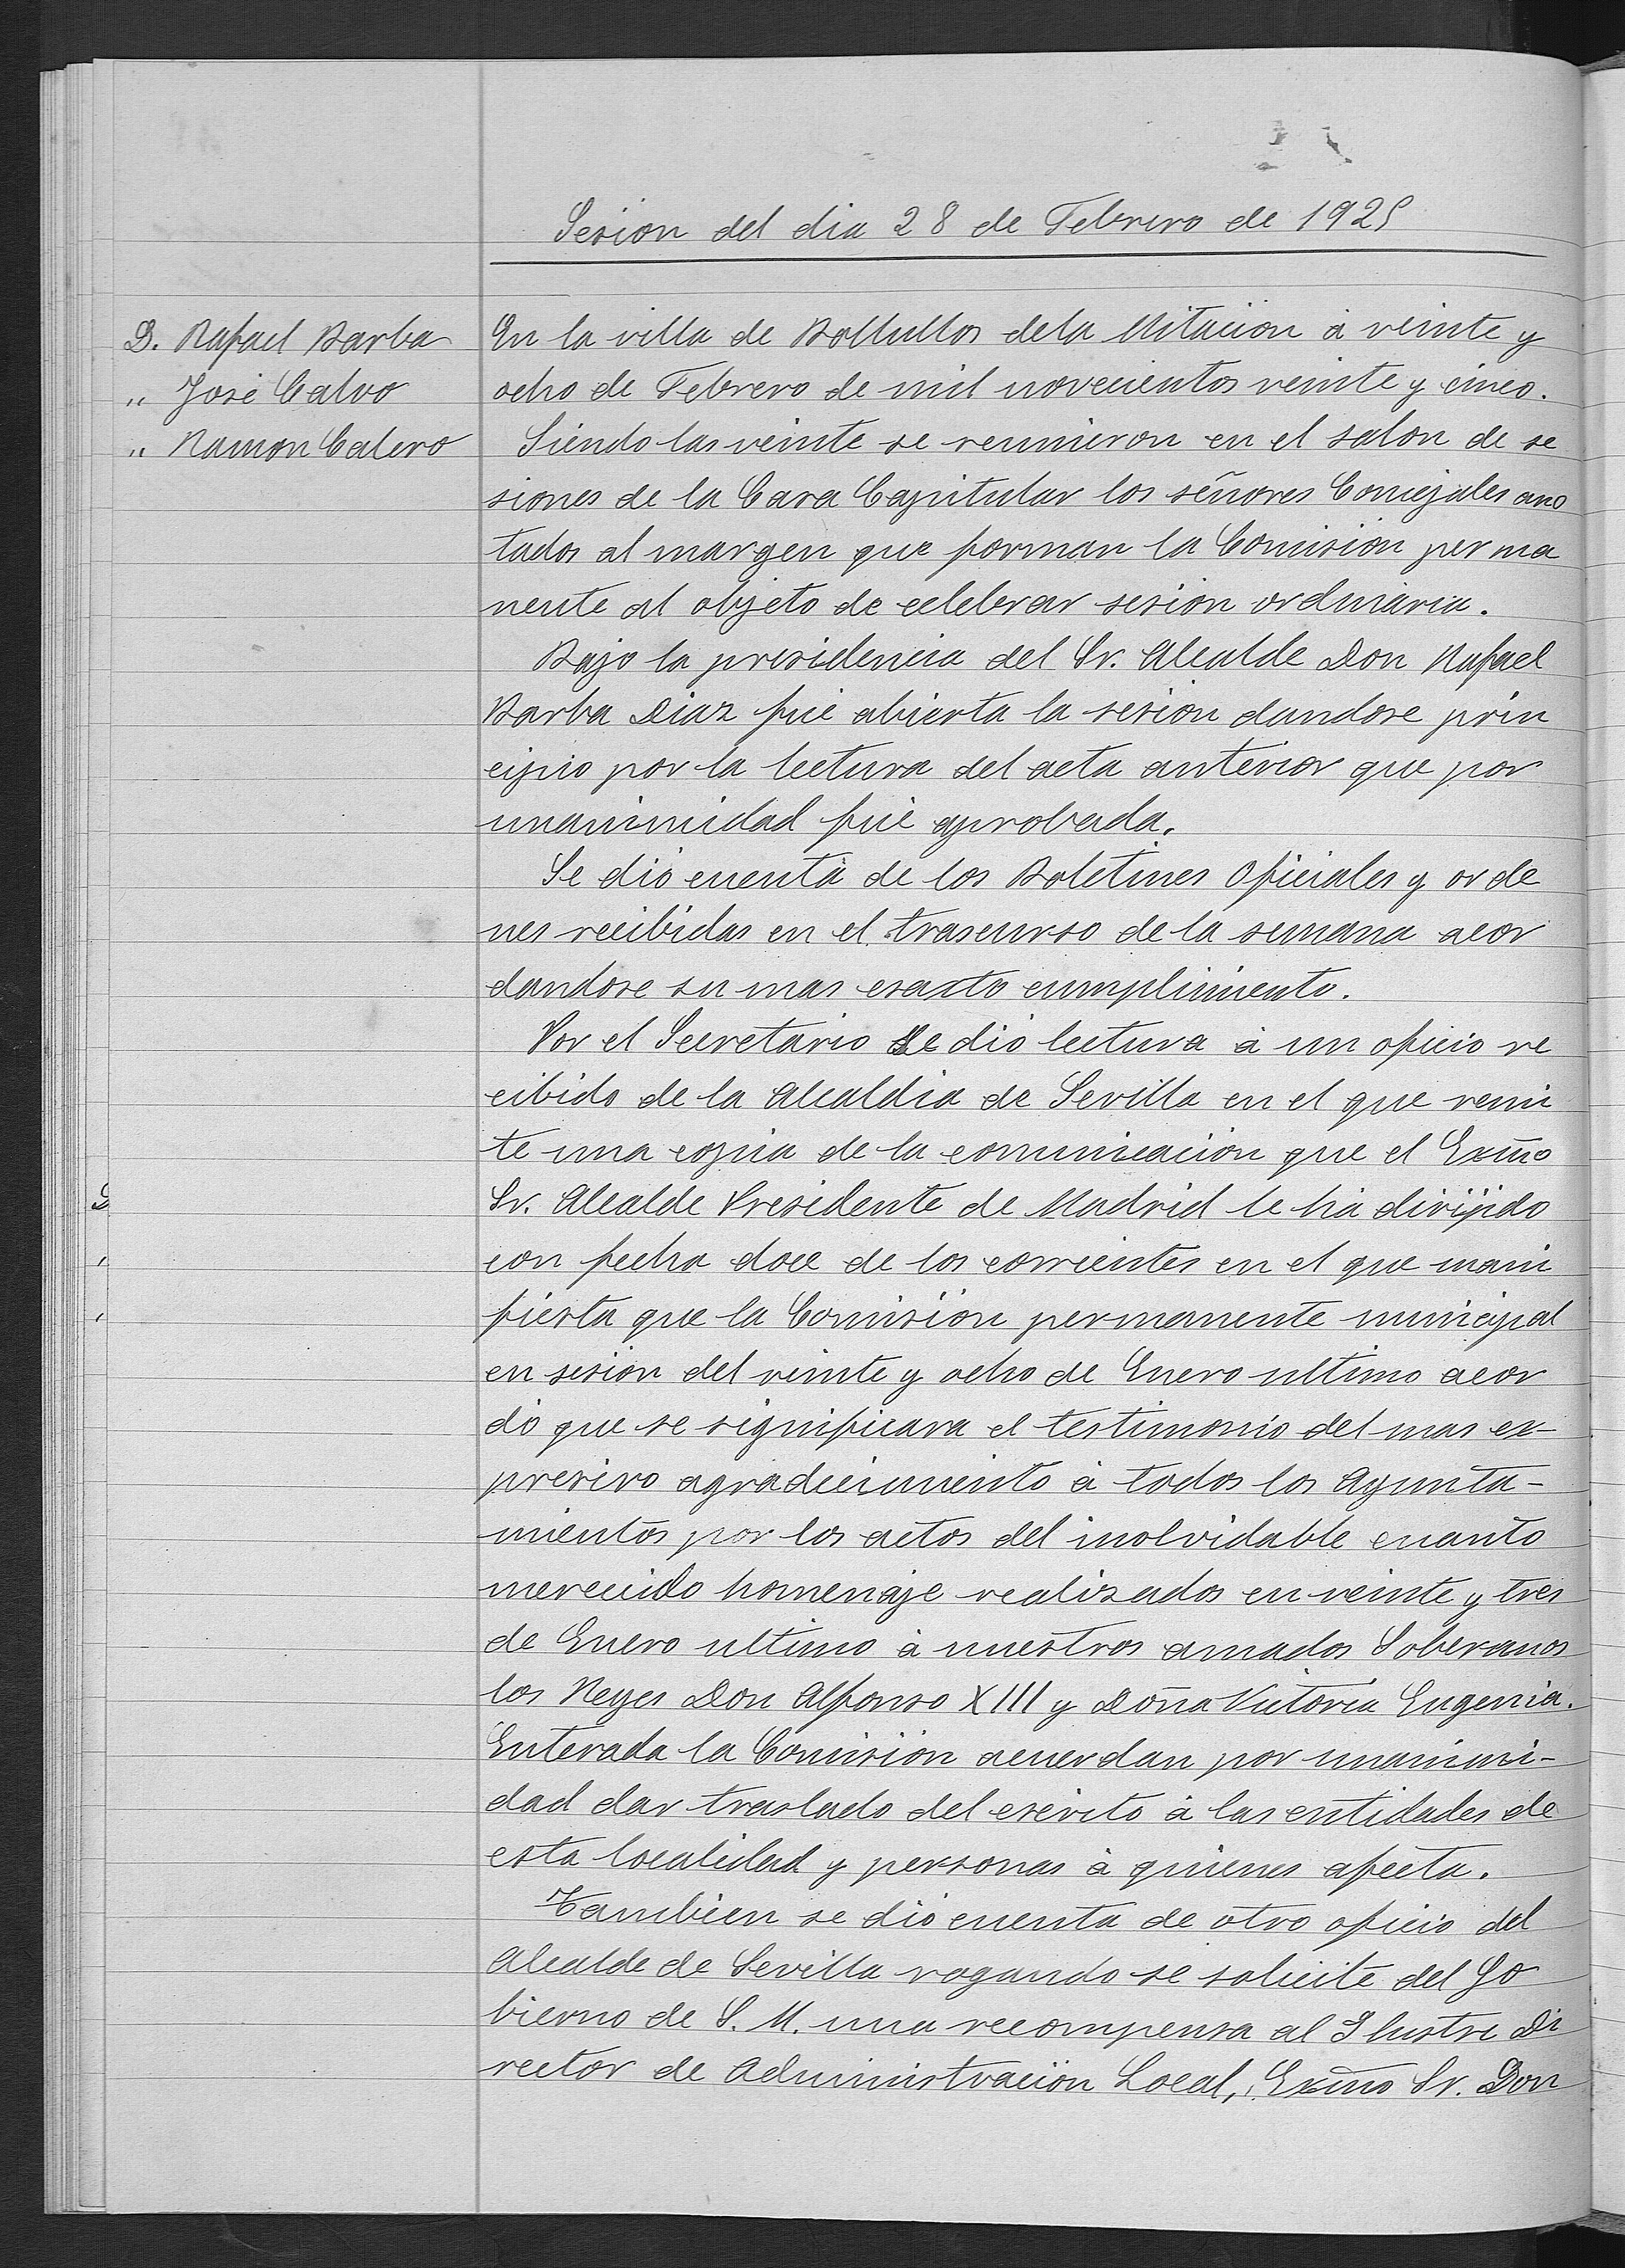 Sesion del dia 28 de Febrero de 1925
D. Rafael Barba
" José Calvo
" Ramon Calero
En la villa de Bollullos dela Mitación á veinte y
ocho de Febrero de mil novecientos veinte y cinco.
Siendo las veinte se reunieron en el salon de se
siones de la Casa Capitular los señores Concejales ano
tados al margen que forman la Comisión perma
nente al objeto de celebrar sesión ordinaria.
Bajo la presidencia del Sr. Alcalde Don Rafael
Barba Diaz fué abierta la sesión dandose prin
cipio por la lectura del acta anterior que por
unanimidad fué aprobada.
Se dió cuenta de los Boletines Oficiales y orde
nes recibidas en el trascurso de la semana acor
dandose su mas esacto cumplimiento.
Por el Secretario Se dió lectura á un oficio re
cibido de la Alcaldia de Sevilla en el que remi
te una copia de la comunicación que el Exmo
Sr. Alcalde Presidente de Madrid le há dirijido
con fecha doce de los corrientes en el que mani
fiesta que la Comisión permanente municipal
en sesión del veinte y ocho de Enero ultimo acor
dó que se significara el testimonio del mas ex-
presivo agradecimiento á todos los Ayunta-
mientos por los actos del inolvidable cuanto
merecido homenaje realizados en veinte y tres
de Enero ultimo á nuestros amados Soberanos
los Reyes Don Alfonso XIII y Doña Victoria Eugenia.
Enterada la Comisión acuerdan por unanimi-
dad dar traslado del escrito á las entidades de
esta localidad y personas á quienes afecta.
Tambien se dió cuenta de otro oficio del
Alcalde de Sevilla rogando se solicite del Go
bierno de S. M. una recompensa al Ilustre Di
rector de Administración Local, Exmo Sr. Don